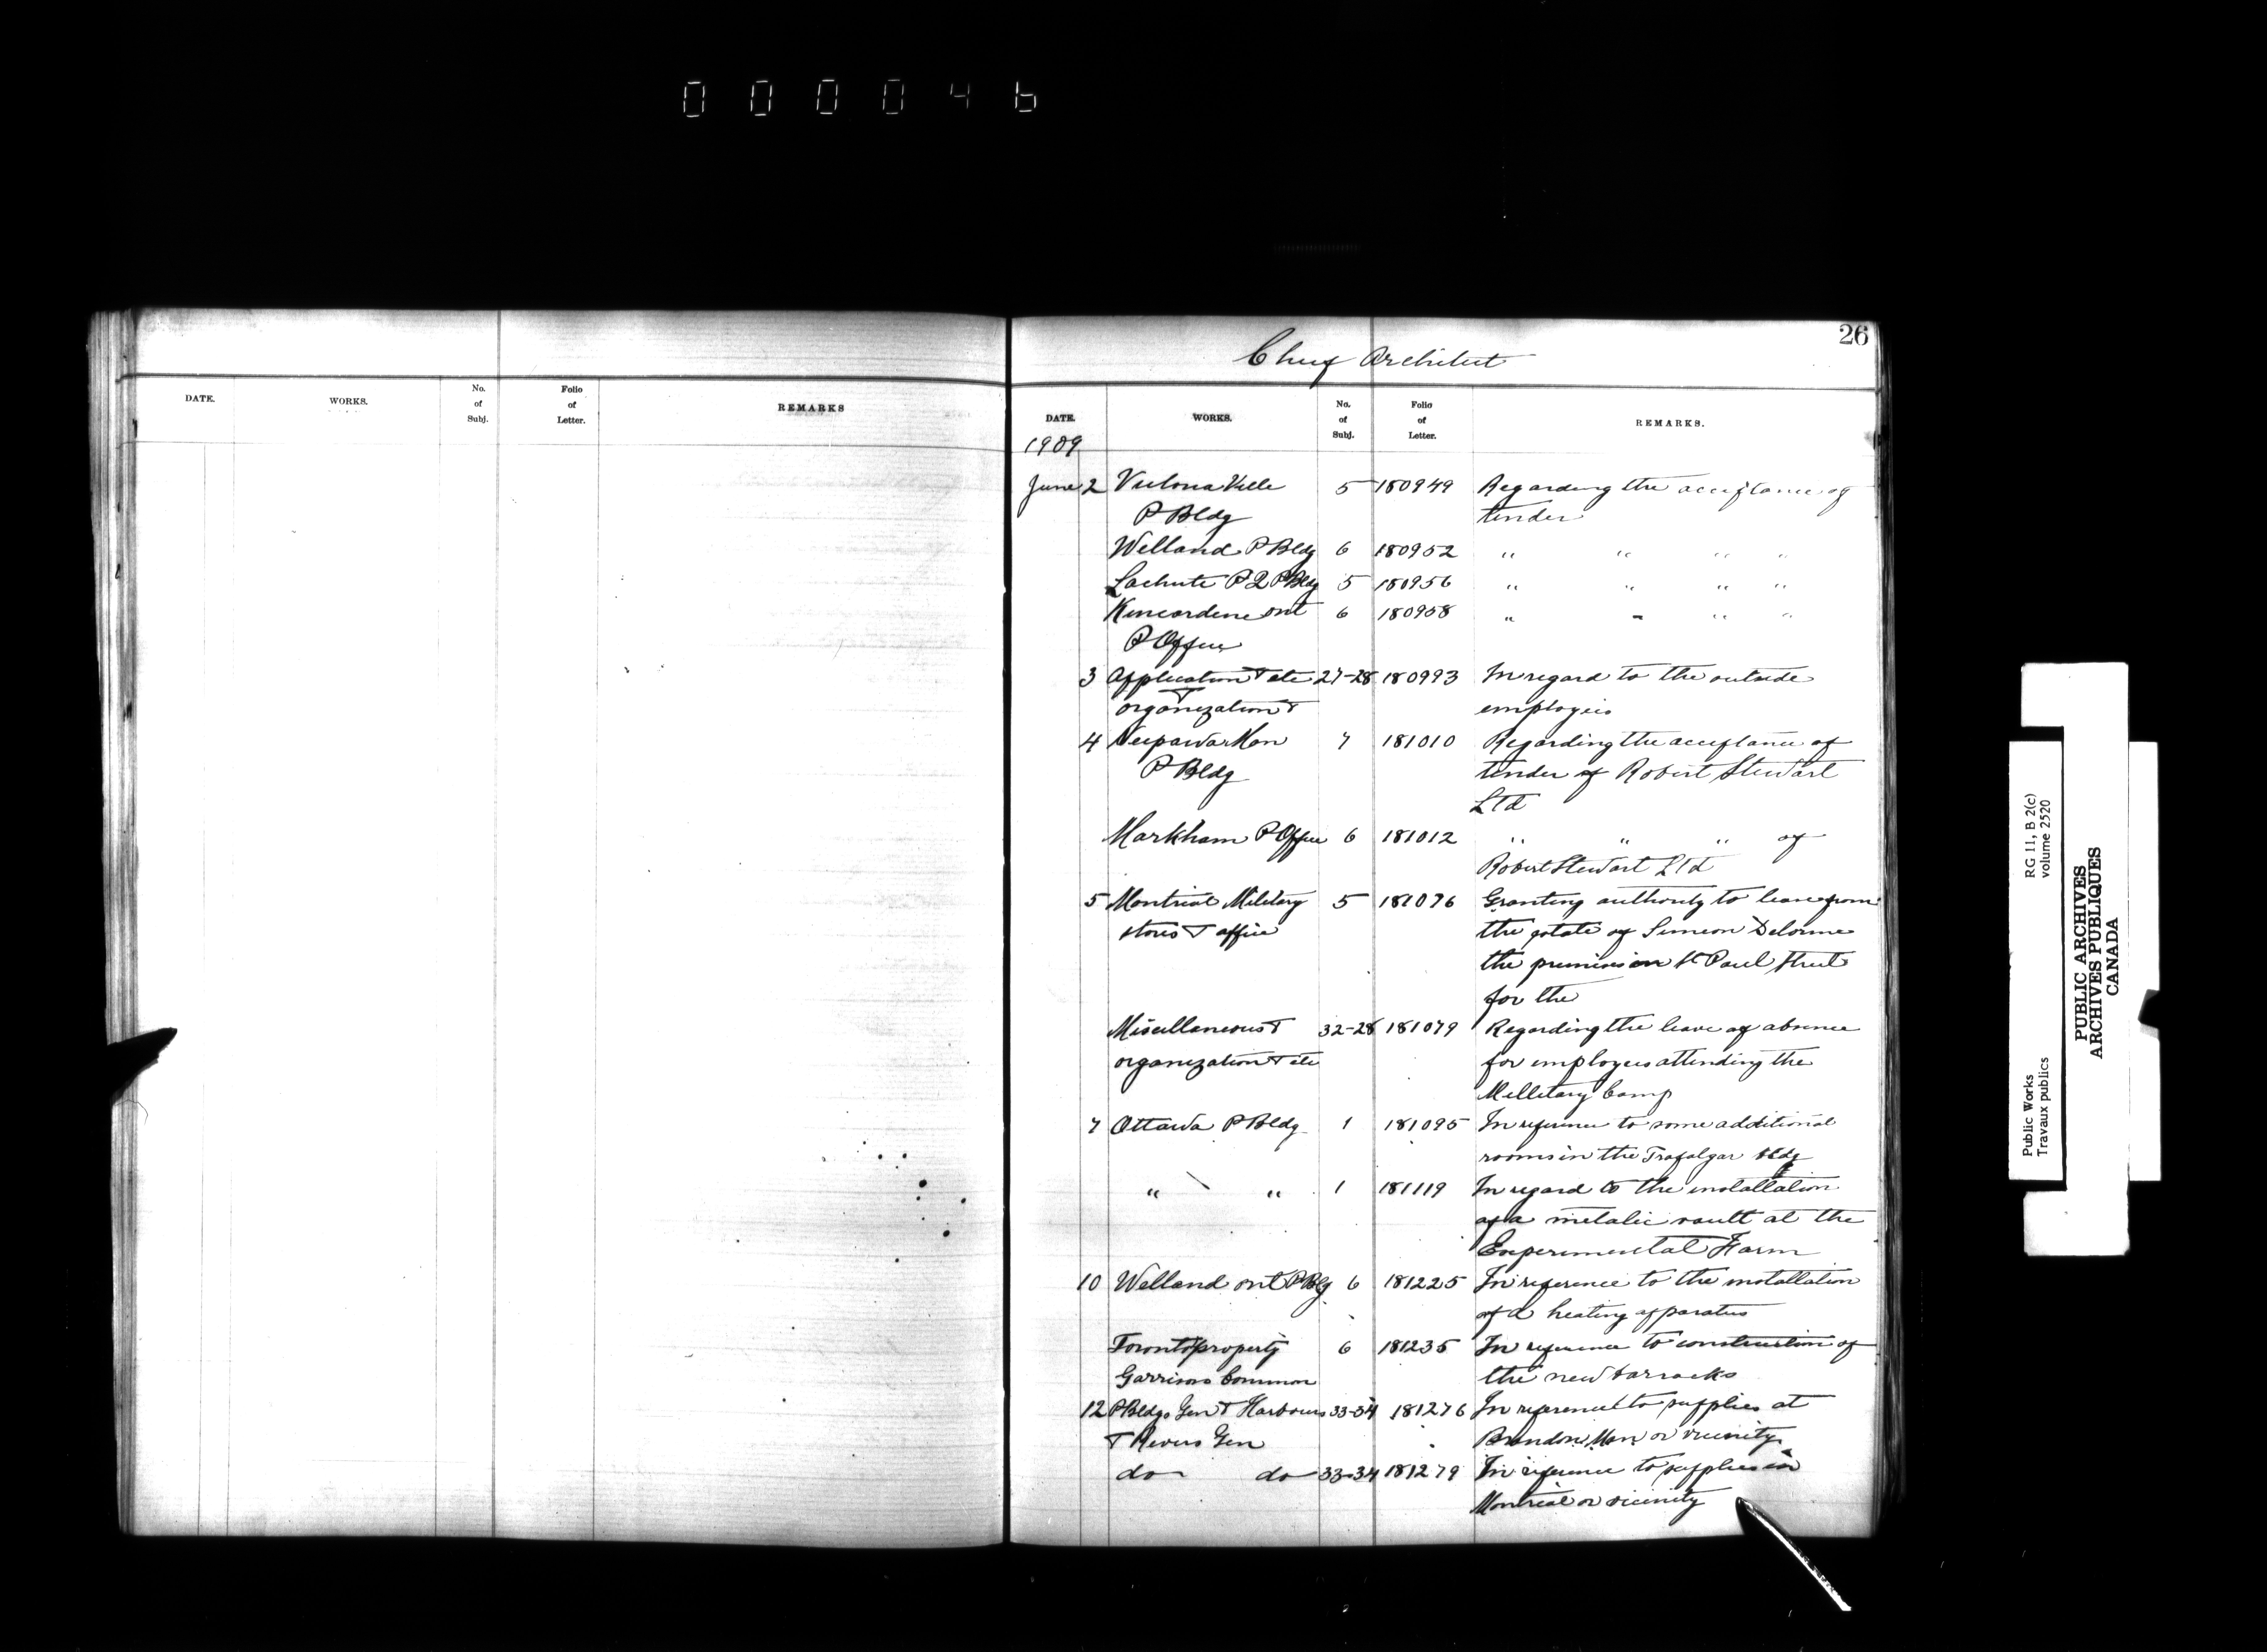 000046
26
Chief Architect
DATE. WORKS. No. of Subj. Folio of Letter. REMARKS
DATE. WORKS. No. of Subj. Folio of Letter. REMARKS.
1909
June 2 Victoriaville 5 180949 Regarding the acceptance of
P Bldg tender
Welland P Bldg 6 180952 " " " "
Lachute P Q P Bldg 5 180956 " " " "
Kincardine Ont 6 180958 " " " "
P Office
3 Application & etc 27-28 180993 In regard to the outside
organization & employees
4 Neepawa Man 7 181010 Regarding the acceptance of
P Bldg tender of Robert Stewart
Ltd
Markham P Office 6 181012 " " " of
Robert Stewart Ltd
5 Montreal Military 5 181076 Granting authority to lease from
stores & office the estate of Simeon Delorme
the premises on St Paul Street
for the
Miscellaneous & 32-28 181079 Regarding the leave of absence
organization & etc for employees attending the
Millitary Camp
7 Ottawa P Bldg 1 181095 In reference to some additional
rooms in the Trafalgar bldg
" " 1 181119 In regard to the installation
of a metalic vault at the
Experimental Farm
10 Welland Ont P Blg 6 181225 In reference to the installation
of a heating apparatus
Toronto property 6 181235 In reference to construction of
Garrison Common the new barracks
12 P Bldgs Gen & Harbours 33-34 181276 In reference to supplies at
& Rivers Gen Brandon Man or vicinity
do do 33-34 181279 In reference to supplies in
Montreal or vicinity
Public Works RG 11, B 2(c)
Travaux publics volume 2520
PUBLIC ARCHIVES
ARCHIVES PUBLIQUES
CANADA